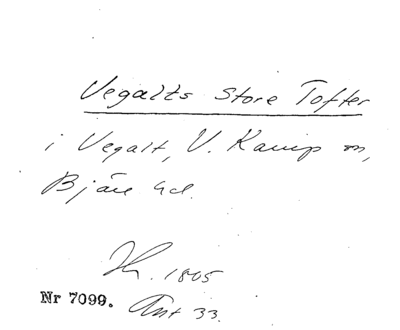 Vegalts Store Tofter
i Vegalt, V. Karup sn,
Bjäre hd.
1805
Nr 7099. Ant 33.